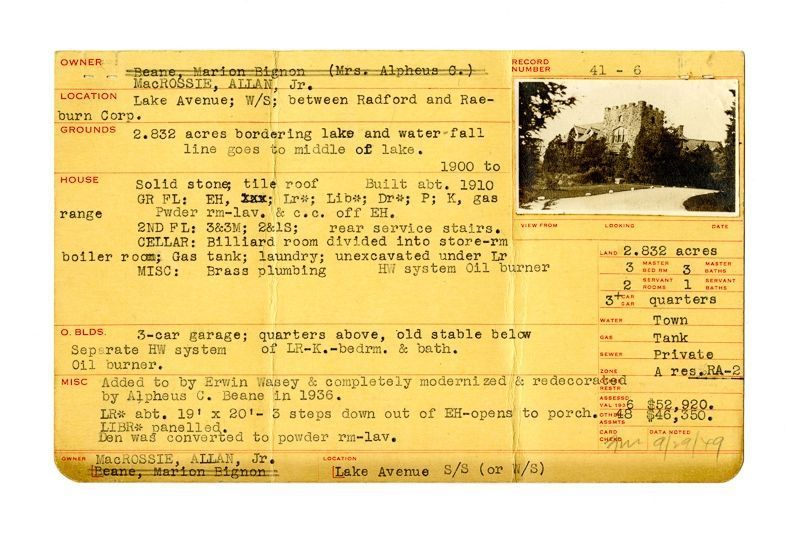 OWNER
Beane, Marion Bignon (Mrs. Alpheus C.)
MacROSSIE, ALLAN, Jr.
RECORD NUMBER 41 - 6
LOCATION Lake Avenue; W/S; between Radford and Rae-
burn Corp.
GROUNDS 2.832 acres bordering lake and water-fall
line goes to middle of lake.
1900 to
HOUSE Solid stone; tile roof Built abt. 1910
GR FL: EH, xxx; Lr*; Lib*; Dr*; P; K, gas
range Pwder rm-lav. & c.c. off EH.
2ND FL: 3&3M; 2&1S; rear service stairs.
CELLAR: Billiard room divided into store-rm
boiler room; Gas tank; laundry; unexcavated under Lr
MISC: Brass plumbing HW system Oil burner
VIEW FROM LOOKING DATE
LAND 2.832 acres
3 MASTER BED RM 3 MASTER BATHS
2 SERVANT ROOMS 1 SERVANT BATHS
3+ CAR CAR quarters
WATER Town
GAS Tank
SEWER Private
ZONE A res. RA-2
RESTR
ASSESSD VAL 1936 $52,920.
OTHER ASSMTS 48 $46,350.
CARD CHEKD DATA NOTED
9/29/49
O. BLDS. 3-car garage; quarters above, old stable below
Separate HW system of LR-K.-bedrm. & bath.
Oil burner.
MISC Added to by Erwin Wasey & completely modernized & redecorated
by Alpheus C. Beane in 1936.
LR* abt. 19' x 20'- 3 steps down out of EH-opens to porch.
LIBR* panelled.
Den was converted to powder rm-lav.
OWNER MacROSSIE, ALLAN, Jr.
Beane, Marion Bignon
LOCATION
Lake Avenue S/S (or W/S)